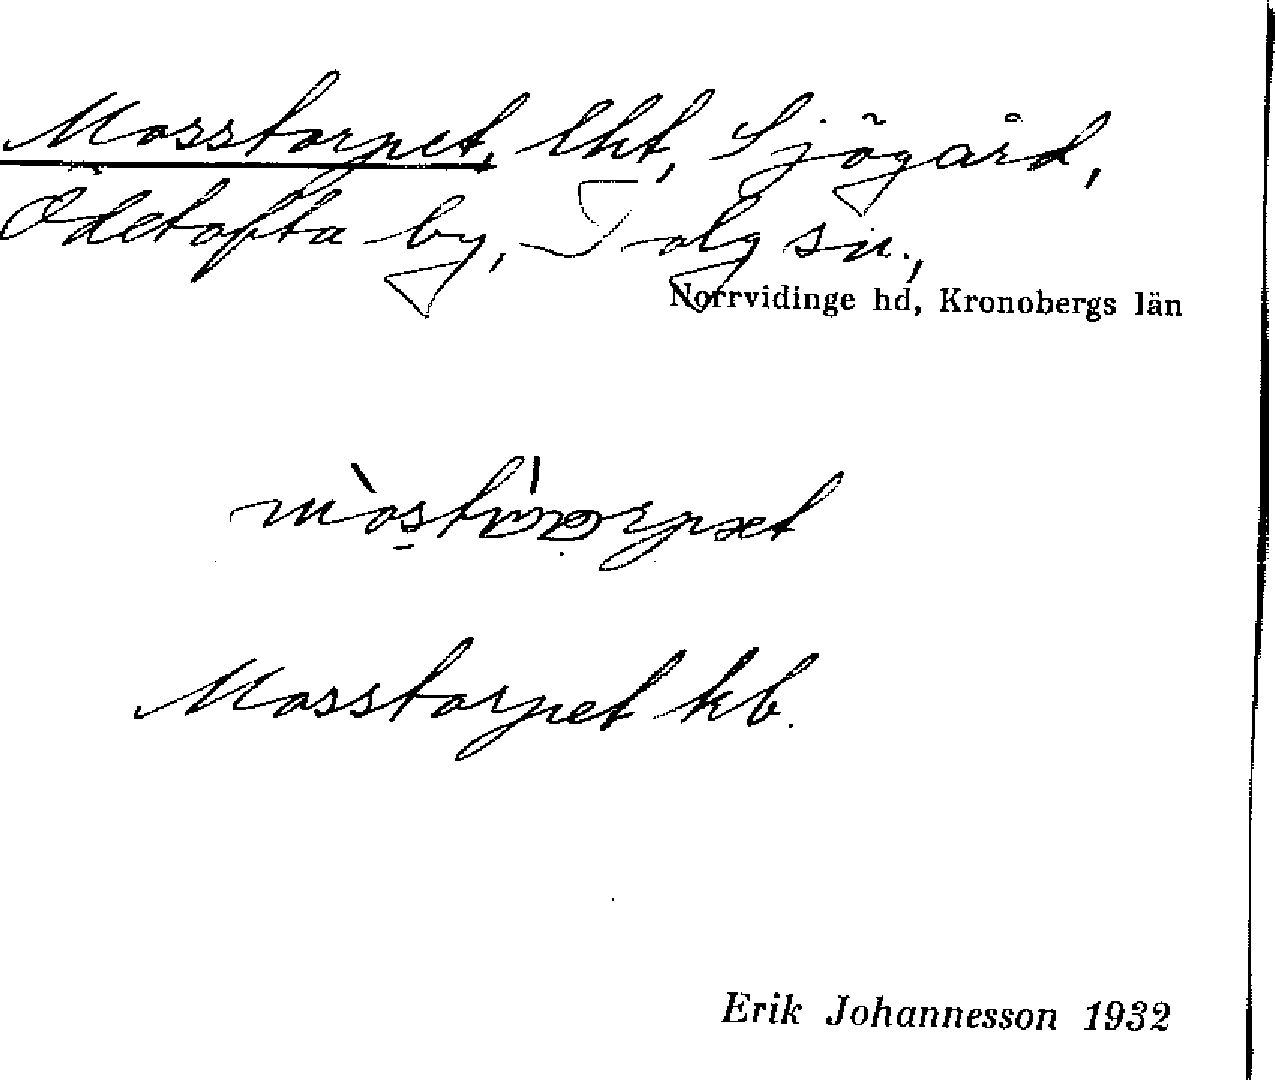 Mosstorpet, lht, Sjögård,
Ödetofta by, Tolg sn.,
Norrvidinge hd, Kronobergs län
Mosstorpet kb.
Erik Johannesson 1932